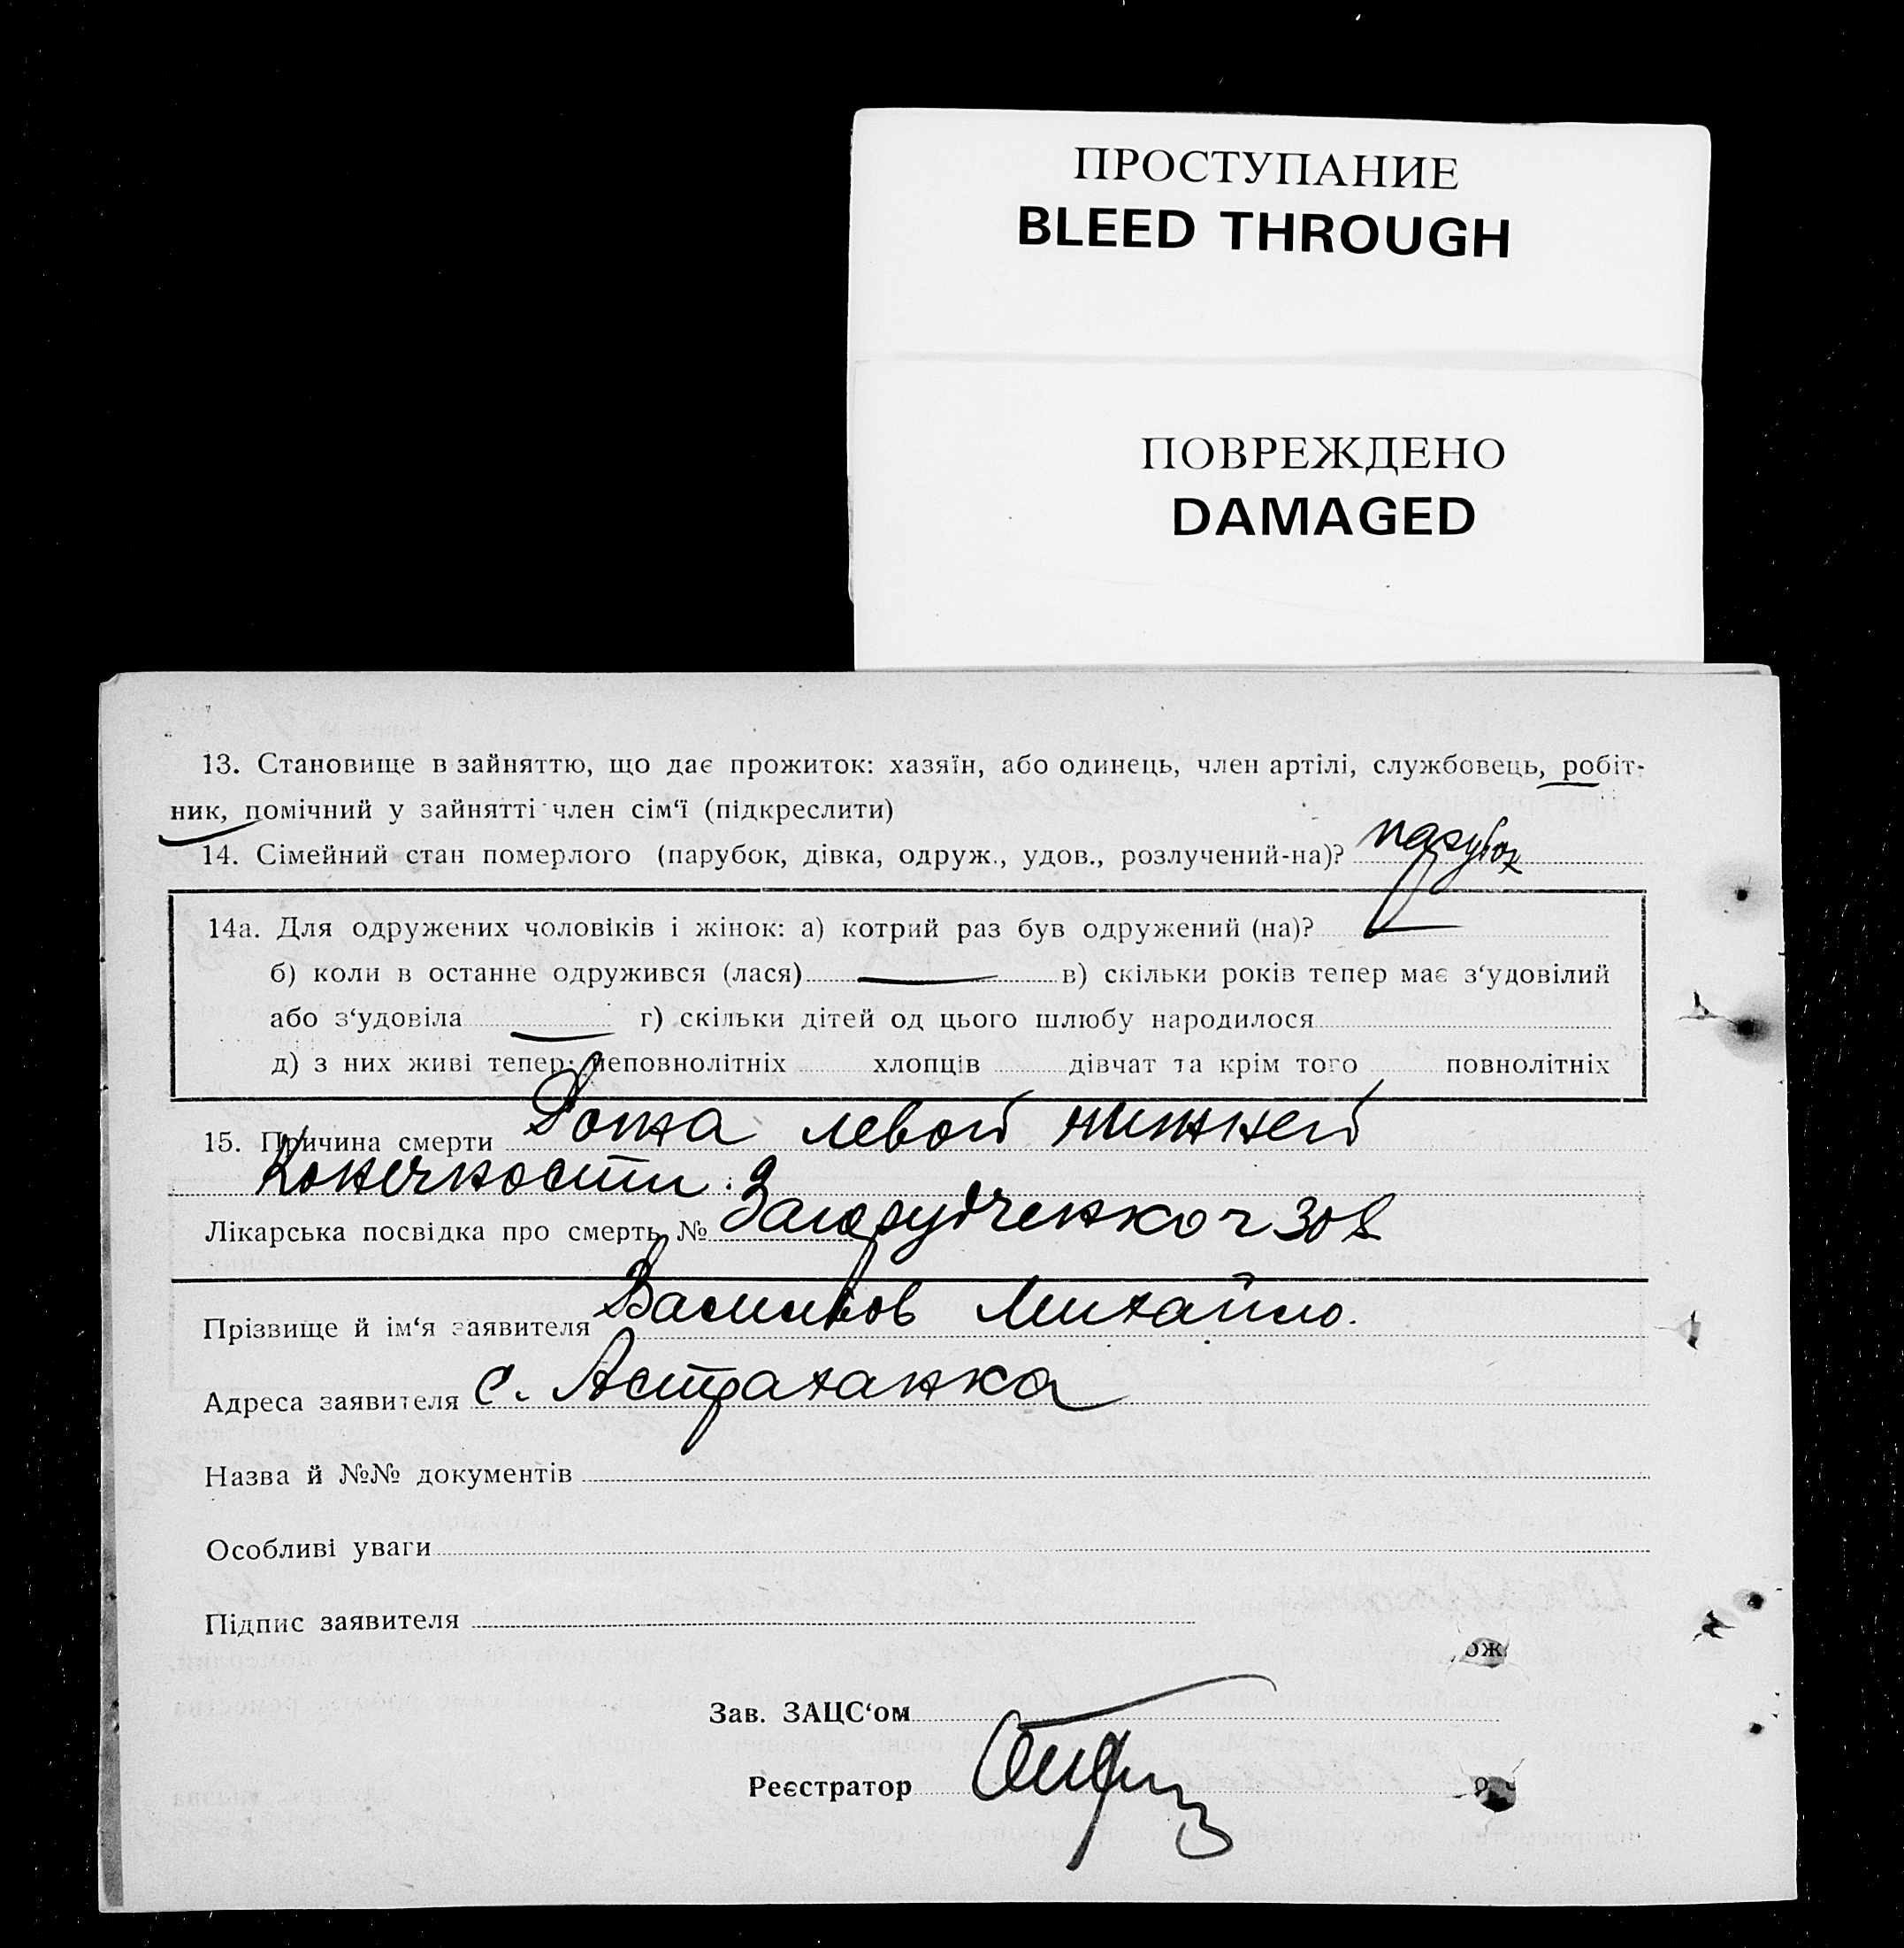 ПРОСТУПАНИЕ
BLEED THROUGH
ПОВРЕЖДЕНО
DAMAGED
13. Становище в зайняттю, що дає прожиток: хазяїн, або одинець, член артілі, службовець, робіт-
ник, помічний у зайнятті член сім‘ї (підкреслити)
14. Сімейний стан померлого (парубок, дівка, одруж., удов., розлучений-на)? парубок
14а. Для одружених чоловіків і жінок: а) котрий раз був одружений (на)?
б) коли в останнє одружився (лася) — в) скільки років тепер має з‘удовілий
або з‘удовіла — г) скільки дітей од цього шлюбу народилося
д) з них живі тепер: неповнолітніх хлопців дівчат та крім того повнолітніх
15. Причина смерти Рожа левой нижней
Конечности.
Лікарська посвідка про смерть №
Прізвище й ім‘я заявителя Васильов Михайло.
Адреса заявителя с. Астраханка
Назва й №№ документів
Особливі уваги
Підпис заявителя
ож
Зав. ЗАЦС‘ом
Реєстратор